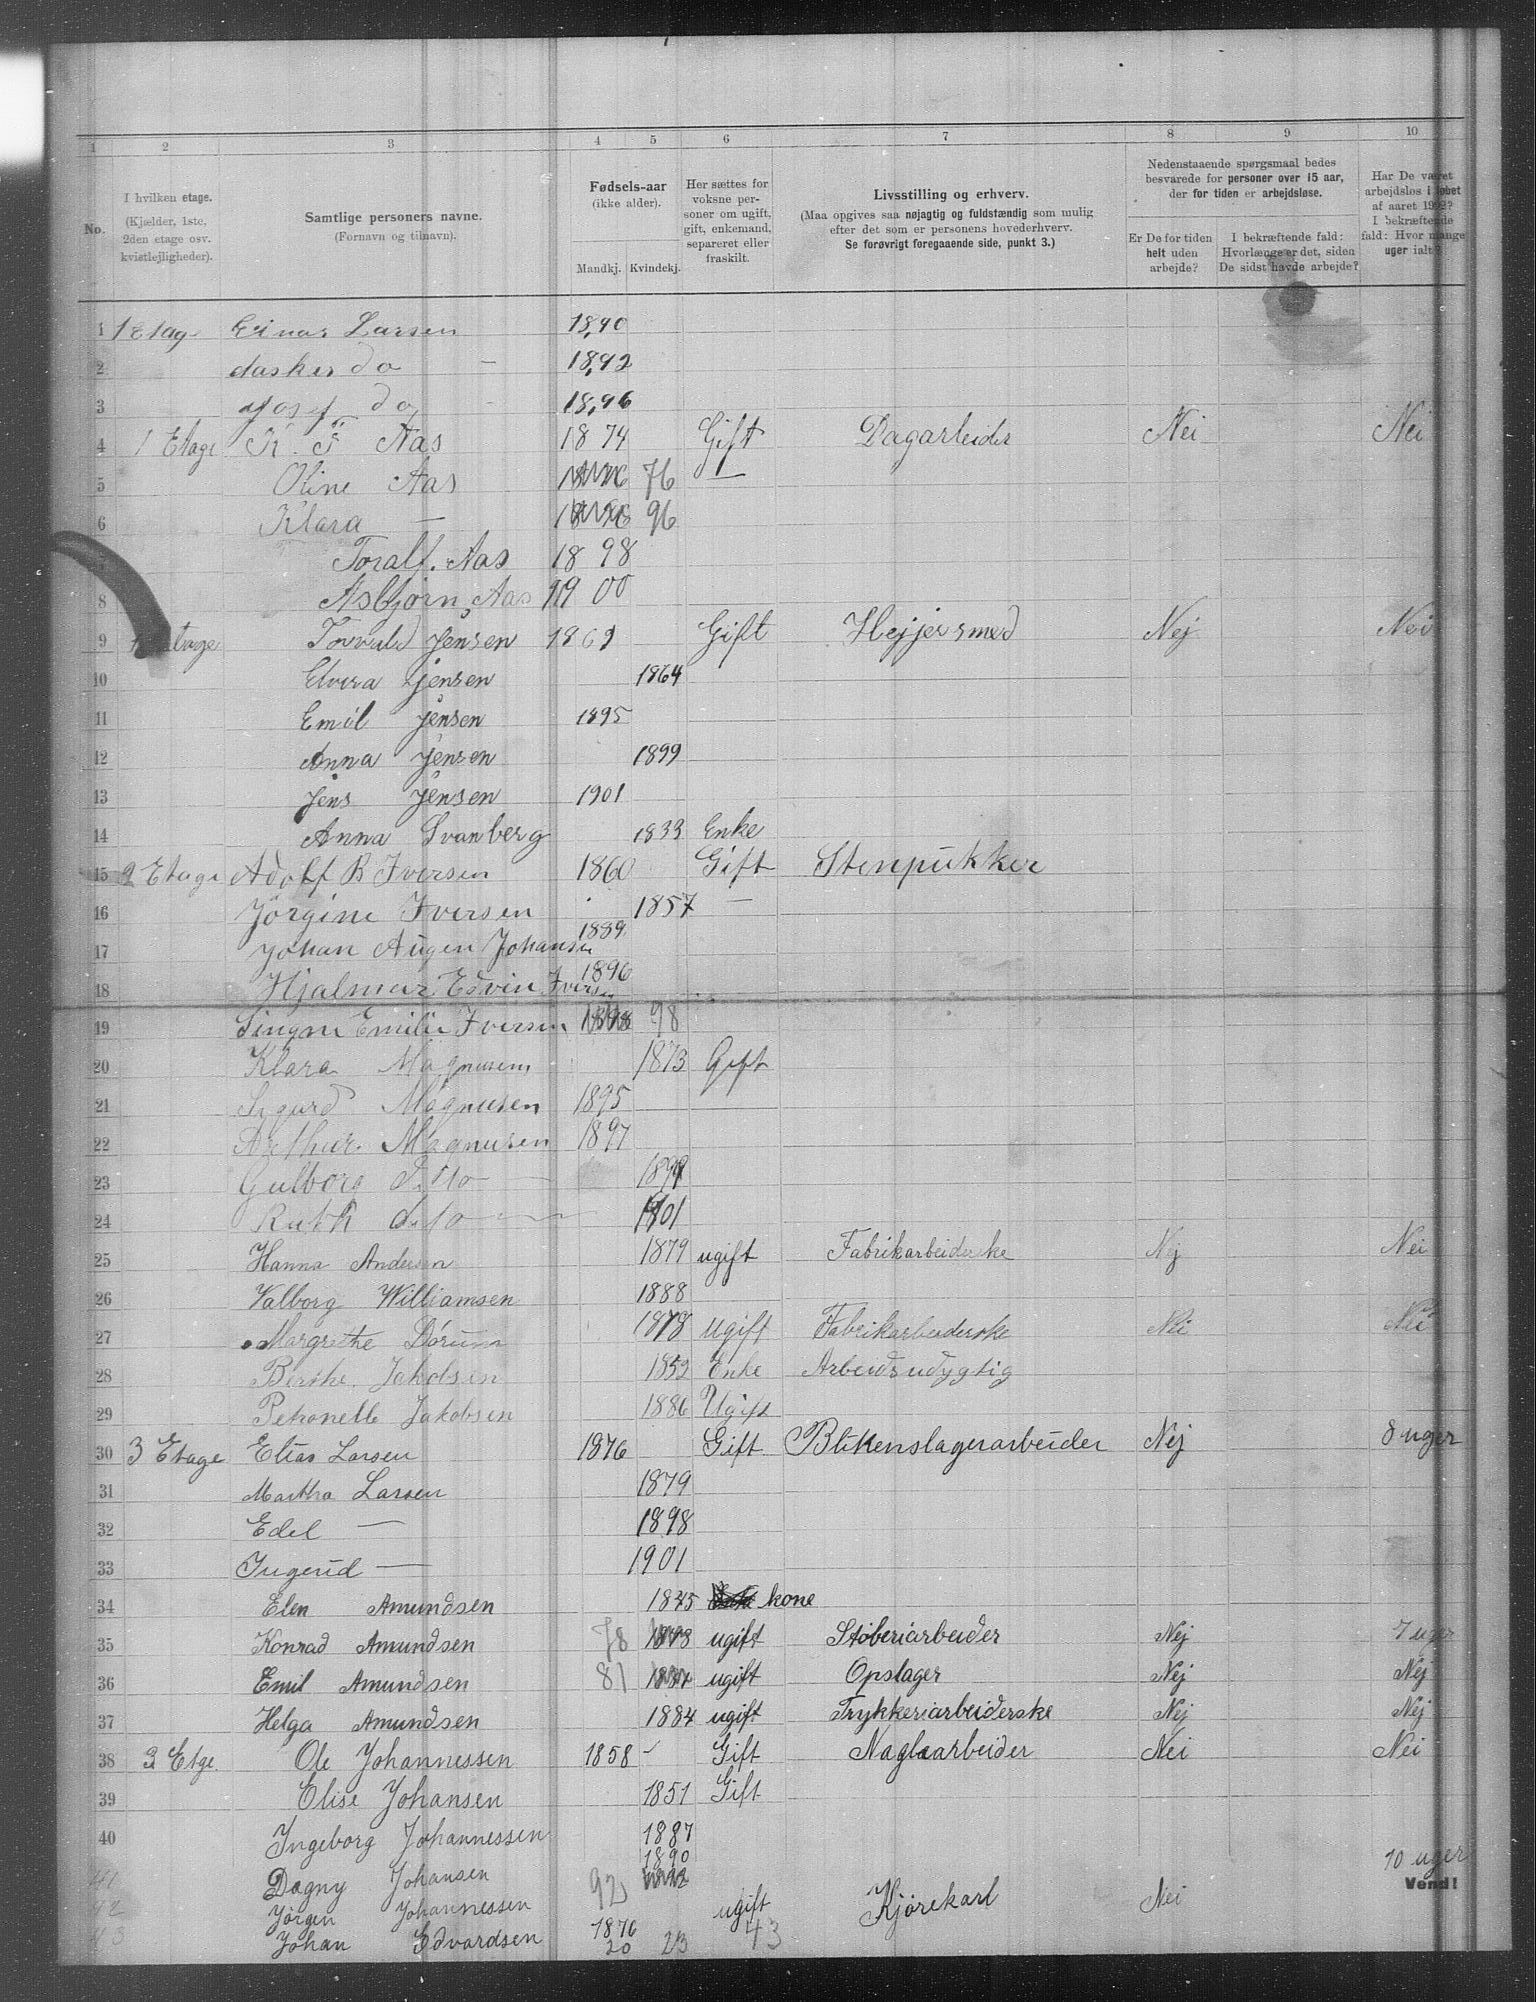 1 2 3 4 5 6 7 8 9 10
No.
I hvilken etage.
(Kjælder, 1ste, 2den etage osv. kvistlejligheder).
Samtlige personers navne.
(Fornavn og tilnavn).
Fødsels-aar
(ikke alder).
Mandkj. Kvindekj.
Her sættes for voksne personer om ugift, gift, enkemand, separeret eller fraskilt.
Livsstilling og erhverv.
(Maa opgives saa nøjagtig og fuldstændig som mulig efter det som er personens hovederhverv.
Se forøvrigt foregaaende side, punkt 3.)
Nedenstaaende spørgsmaal bedes besvarede for personer over 15 aar, der for tiden er arbejdsløse.
Er De for tiden helt uden arbejde?
I bekræftende fald: Hvorlænge er det, siden De sidst havde arbejde?
Har De været arbejdsløs i løbet af aaret 1902? I bekræftende fald: Hvor mange uger ialt?
1 1 Etag Einar Larsen 1890
2 do 1892
3 Josef do 1896
4 1 Etage K. F. Aas 1874 Gift Dagarbeider Nei Nei
5 Oline Aas 76 —
6 Klara — 96
7 Toralf. Aas 1898
8 Asbjørn Aas 1900
9 Etage Torvald Jensen 1861 Gift Hejjersmed Nej Nei
10 Elvira Jensen 1864
11 Emil Jensen 1895
12 Anna Jensen 1899
13 Jens Jensen 1901
14 Anna Svanberg 1833 Enke
15 2 Etage Adolf B Iversen 1860 Gift Stenpukker
16 Jörgine Iversen 1857 —
17 Johan Augen Johansen 1889
18 Hjalmar Edvin Iversen 1896
19 Singne Emilie Iversen 98
20 Klara Magnusen 1873 Gift
21 Sigurd Magnusen 1895
22 Arthur Magnusen 1897
23 Gulborg Ditto 1899
24 Ruth dito 1901
25 Hanna Andersen 1879 ugift Fabrikarbeiderske Nej Nei
26 Valborg Williamsen 1888
27 Margrethe Dörum 1878 ugift Fabrikarbeiderske Nei Nei
28 Berthe Jakobsen 1852 Enke Arbeidsudygtig
29 Petronelle Jakobsen 1886 Ugift
30 3 Etage Elias Larsen 1876 Gift Blikenslagerarbeider Nej 8 uger
31 Martha Larsen 1879
32 Edel — 1898
33 Ingerid — 1901
34 Elen Amundsen 1845 kone
35 Konrad Amundsen 78 ugift Støberiarbeider Nej 7 uger
36 Emil Amundsen 81 ugift Opslager Nej Nej
37 Helga Amundsen 1884 ugift Trykkeriarbeiderske Nej Nej
38 3 Etge Ole Johannessen 1858 Gift Naglearbeider Nei Nei
39 Elise Johansen 1851 Gift
40 Ingeborg Johannessen 1887
41 Dagny Johansen 1890
42 Jørgen Johannessen 92
43 Johan Edvardsen 1876 ugift Kjörekarl Nei 10 uger
Vend!
20 23 43